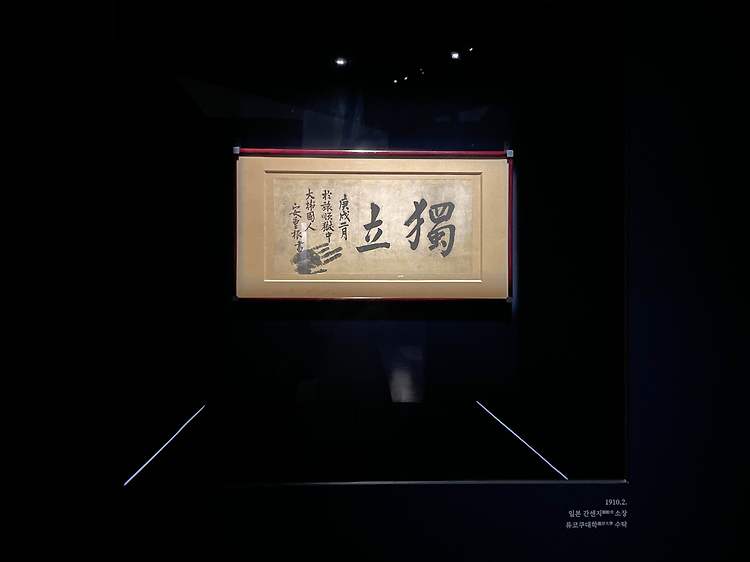 獨立
庚戌二月
於旅順獄中
大韓國人
安重根書
1910.2.
일본 간센지 소장
류코쿠대학 수탁